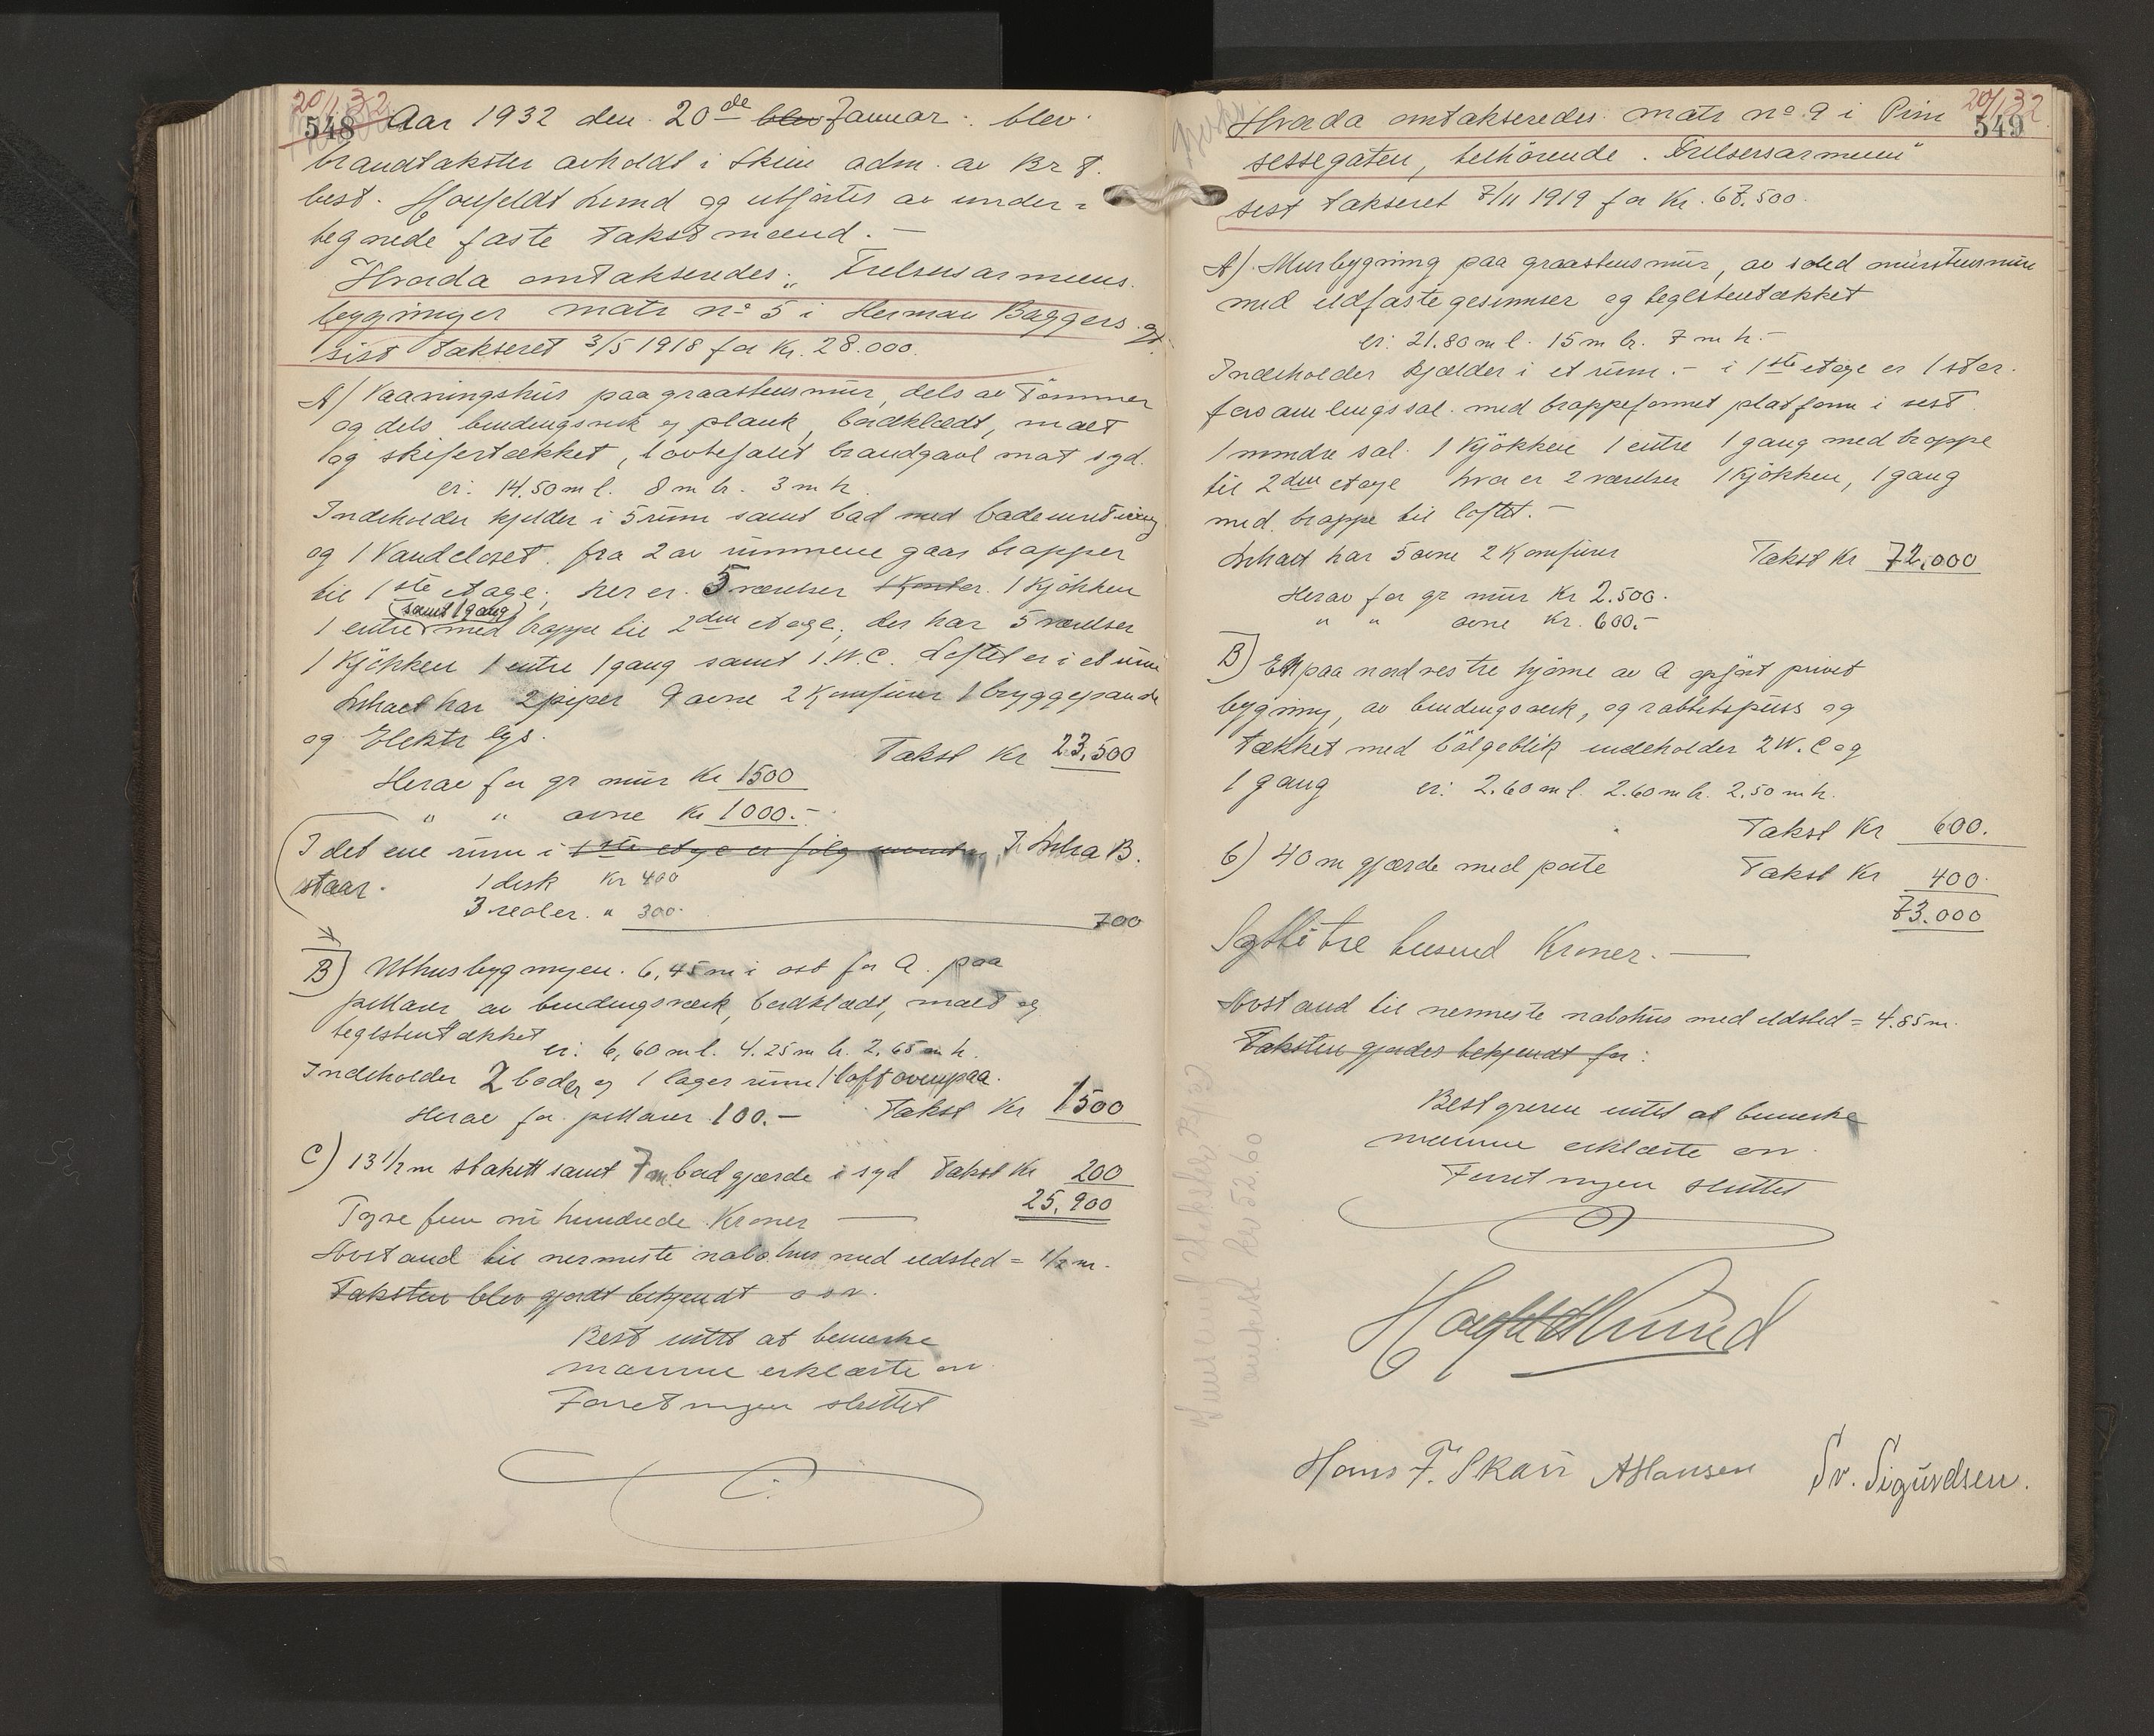 20/1 32
548
Aar 1932 den 20de blev Januar. blev
brandtakster avholdt i Skien adm. av Br t.
best. Houfeldt Lund og utførtes av under=
tegnede faste takstmænd. —
Hvorda omtakseredes: "Frelsesarmeens
bygninger matr no 5 i Herman Baggers gt.
sist takseret 3/5 1918 for Kr. 28.000.
A) Vaaningshus paa graastensmur, dels av Tømmer
og dels bindingsverk og plank, bordklædt, malt
og skifertækket, lovbefalt brandgavl mot syd.
er: 14.50 m l. 8 m br. 3 m h.
Indeholder kjelder i 5 rum samt bad med badeinnretning
og 1 Vandcloset. fra 2 av rummene gaar trapper
til 1ste etage; her er. 5 værelser 1 Kontor. 1 Kjøkken
(samt 1 gang)
1 entre med trappe til 2den etage, der har 5 værelser
1 Kjøkken 1 entre 1 gang samt 1 W.C. Loftet er i et rum
Inhaet har 2 piper 9 ovne 2 Komfurer 1 bryggepande
og Elektr lys.
Takst Kr 23.500
Herav for gr mur Kr 1500
" " ovne Kr 1000.-
I det ene rum i 1ste etage er følg I Litra B.
staar.
1 disk Kr 400
3 reoler. " 300.
700
B) Uthusbygningen. 6,45 m i ost for A. paa
pillarer av bindingsværk, bordklædt, malt og
teglstentækket
er: 6,60 m l. 4.25 m br. 2,65 m h.
Indeholder 2 boder og 1 lagerrum 1 loft ovenpaa.
Herav for pillarer 100.- Takst Kr 1500
C) 13 1/2 m stakitt samt 7 m bordgjærde i syd Takst Kr 200
25,900
Tyve fem ni hundrede Kroner —
Avstand til nermeste nabohus med ildsted = 1/2 m.
Taksten blev gjordt bekjendt o s v.
Best intet at bemerke
mænne erklærte en
Forretningen sluttet
20/1 32
549
Hvorda omtakseredes matr no 9 i Prin
sessegaten, tilhørende "Frelsersarmeen"
sist takseret 7/11 1919 for Kr. 67.500.
A) Murbygning paa graastensmur, av solid murstensmur
med ildfaste gesimser og teglstentækket
er: 21.80 m l. 15 m br. 7 m h.
Indeholder kjælder i et rum. - i 1ste etage er 1 stor.
forsamlingssal med trappeformet platform i vest
1 mindre sal. 1 Kjøkken 1 entre 1 gang med trappe
til 2den etage hvor er 2 værelser 1 Kjøkken, 1 gang
med trappe til loftet. -
Inhaet har 5 ovne 2 Komfurer Takst Kr 72.000
Herav for gr mur Kr 2.500.
" " ovne Kr. 600.-
B) Et paa nordvestre hjørne av A opført privet
bygning, av bindingsverk, og rabbitspuss og
tækket med bølgeblik indeholder 2 W.C og
1 gang er: 2.60 m l. 2.60 m br. 2,50 m h.
Takst Kr 600.
6) 40 m gjærde med porte Takst Kr 400.
73.000
Syttitre tusend Kroner. —
Avstand til nermeste nabohus med ildsted = 4.85 m.
Taksten gjordes bekjendt for:
Bestyreren intet at bemerke
mænne erklærte en
Forretningen sluttet
Houfeldt Lund
Hans F. Skau A Hansen Sv. Sigurdsen.